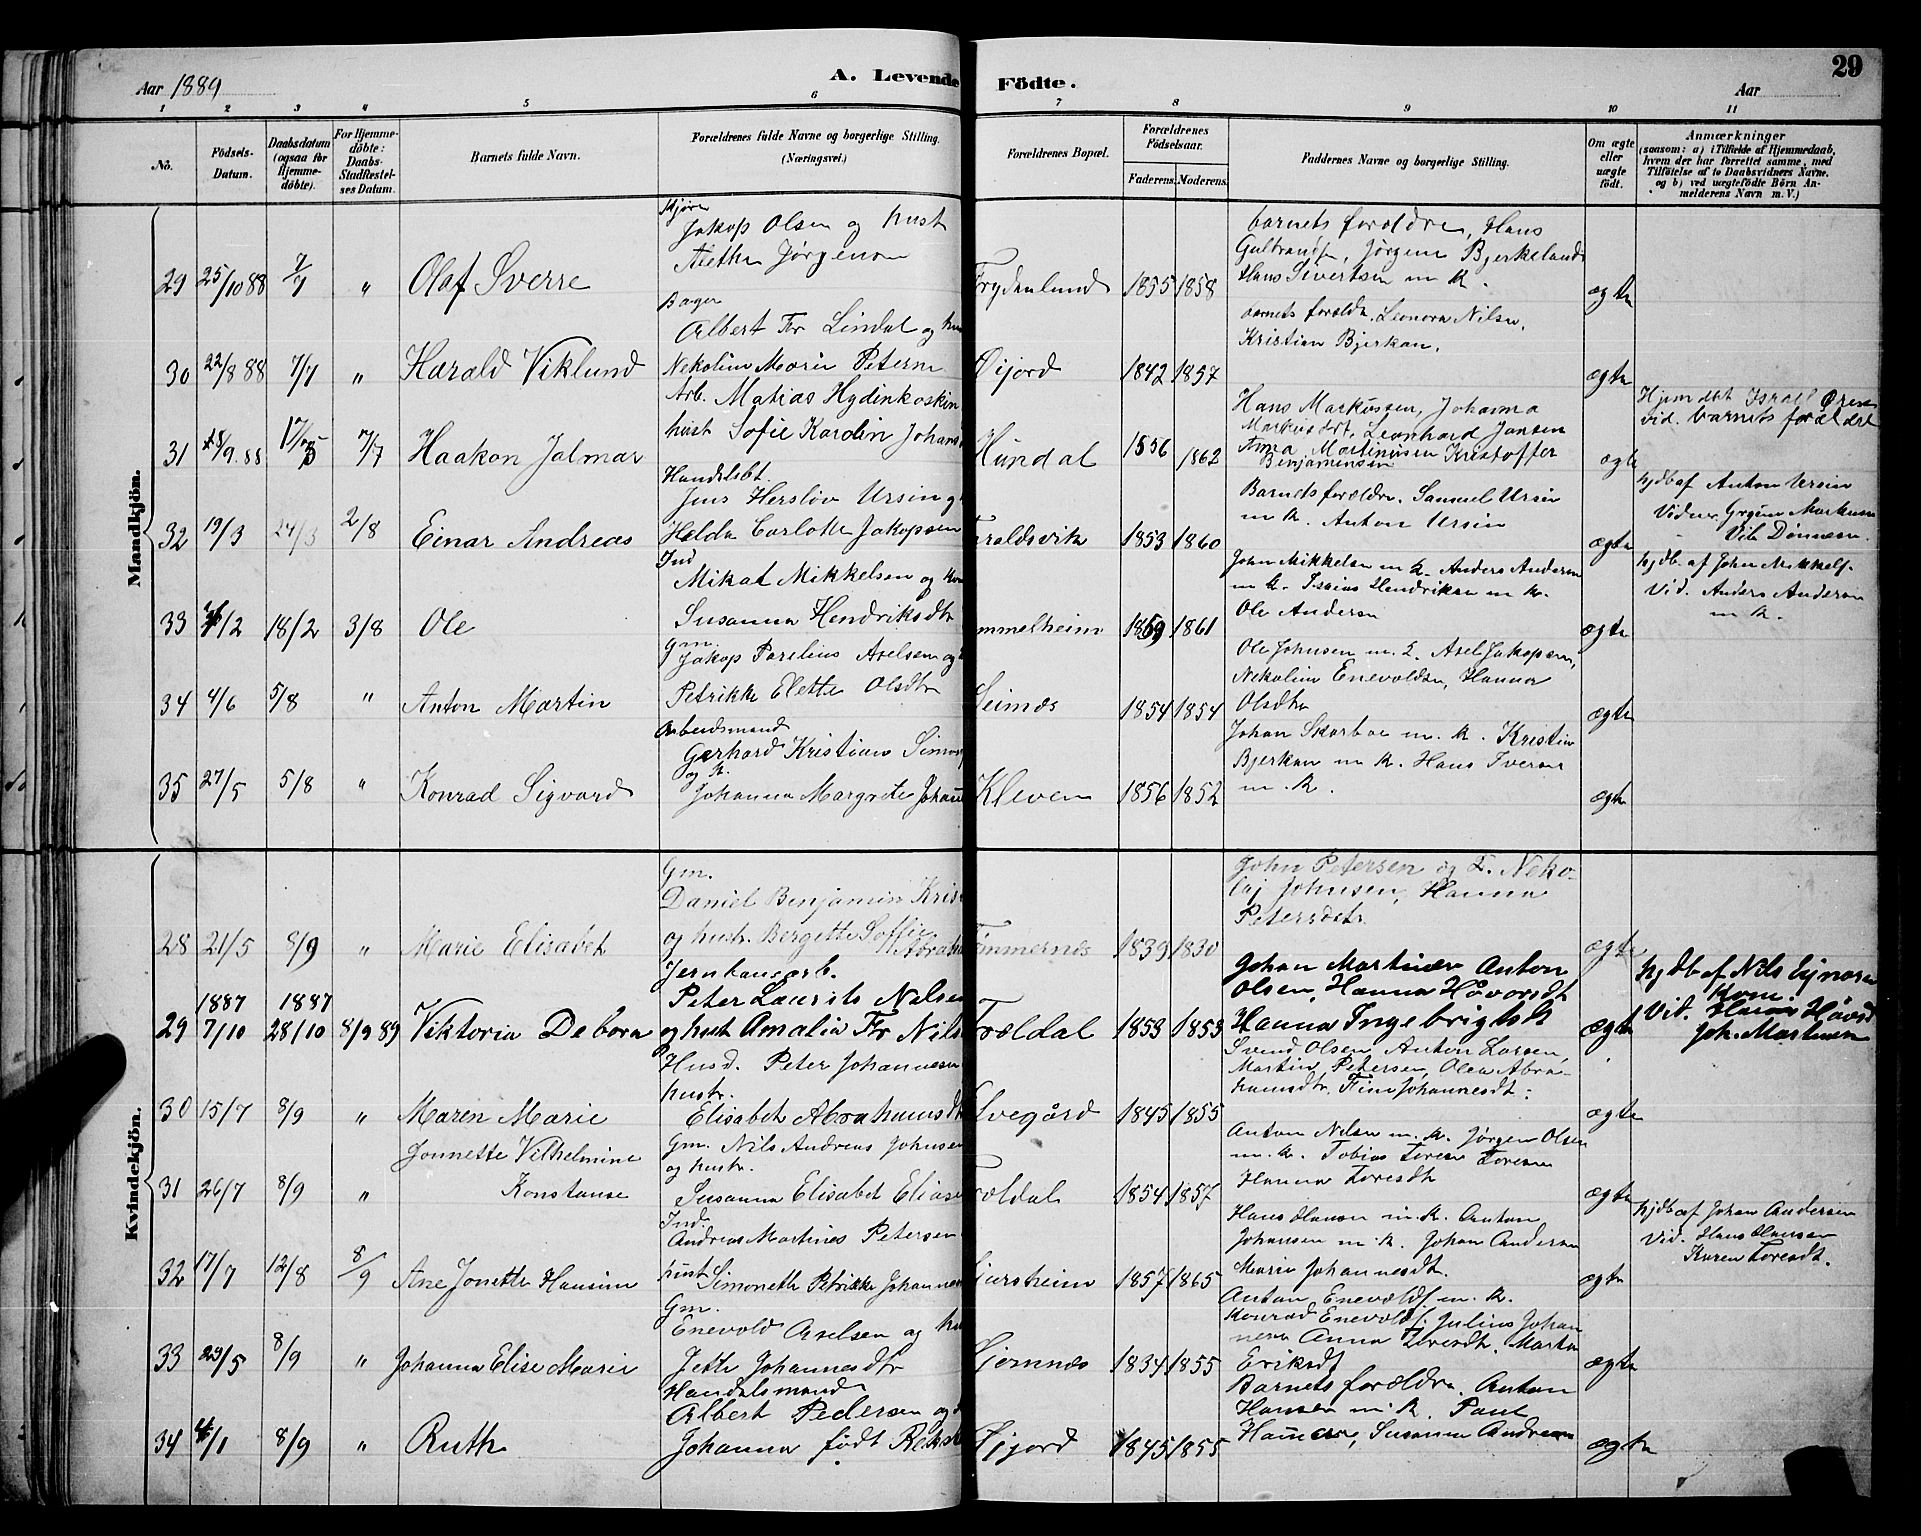 29
Aar 1889
A. Levende Födte.
Aar
1 2 3 4 5 6 7 8 9 10 11
No.
Födsels-Datum.
Daabsdatum (ogsaa för Hjemme-döbte).
For Hjemme-döbte: Daabs-Stadfæstelses Datum.
Barnets fulde Navn.
Forældrenes fulde Navne og borgerlige Stilling. (Næringsvei.)
Forældrenes Bopæl.
Forældrenes Födselsaar.
Faderens. Moderens.
Faddernes Navne og borgerlige Stilling.
Om ægte eller uægte födt.
Anmærkninger
(saasom: a) i Tilfælde af Hjemmedaab,
hvem der har forrettet samme, med
Tilföielse af to Daabsvidners Navne,
og b) ved uægtefödte Börn An-
melderens Navn m. V.)
Mandkjön.
29 25/10 88 7/7 " Olaf Sverre
Jakop Olsen og hust
Alethe Jörgensen
Frydenlund 1855 1858
barnets forældre, Hans
Gulbrands, Jørgine Bjerkelund
Hans Sivertsen m K.
ægte
30 22/8 88 7/7 " Harald Viklund
Bager
Albert Fr Lindal og hu
Nekoline Marie Petern
Øijord 1842 1857
barnets foreldr. Leonora Nilsen,
Kristian Bjerkan.
ægte
31 /9. 88 7/7 Haakon Jalmar
Arb. Matias Hydenkoskin
hust Sofie Karolin Johans
Hundal 1856 1862
Hans Markussen, Johanna
Markusdt, Leonhard Jansen
Anna Martinusen Kristoffer
Benjaminsen
ægte
Hjemdbt Israel
vid. barnets foreldre
32 19/3 24/3 2/8 Einar Andreas
Handelsbt.
Jens Herslöv Ursin og
Helda Carlotte Jakopsen
raldsvik 1853 1860
Barnets forældre. Samuel Ursin
m K. Anton Ursin
ægte
hjdb af Anton Ursin
Vidner Jørgen Markusen
Vib Dønnesen
33 /2 18/2 3/8 Ole
Ind
Mikal Mikkelsen og kon
Susanna Hendriksdtr
mmelheim 1869 1861
John Mikkelsen m K. Anders Andersen
m K. Isaias Hendriksen m K.
Ole Andersen
ægte
hjdb. af John Mikkels.
Vid. Anders Andersen
m K.
34 4/6 5/8 " Anton Martin
Gm.
Jakop Parelius Axelsen og
Petrikke Elette Olsdtr
eimnes 1854 1854
Ole Johnsen m. K. Axel Jakopsen,
Nekoline Enevoldsen, Hanna
Olsdtr
ægte
35 27/5 5/8 " Konrad Sigvard
Arbeidsmand
Gerhard Kristian Simons
og K.
Johanna Margrete Johan
Kleven 1856 1852
Johan Skarboe m. K. Kristin
Bjerkan m K. Hans Iversen
m. K.
ægte
Kvindekjön.
28 21/5 8/9 " Marie Elisabet
Gm.
Daniel Benjamin Kris
og hustr. Bergette Soffie Abraha
mmernes 1839 1830
John Petersen og K. Neko-
laj Johnsen, Hanna
Petersdtr
ægte
29 1887 7/10 1887 28/10 8/9 89 Viktoria Debora
Jernbanearb.
Peter Laurits Nelsen
og hust Amalia Fr Nils
Træeldal 1853 1853
Johan Martinsen Anton
Olsen, Hanna Håvarsdt
Hanna Ingebrigtsdt
ægte
hjdb af Nils Ejnarsen
Kone.
Vid. Hanna Håvsd
Joh. Martinsen
30 15/7 8/9 " Maren Marie
Husd. Peter Johannesen
hustr.
Elisabet Abrahamsdt
lvegård 1845 1855
Svend Olsen, Anton Larsen,
Martin Petersen, Olea Abra-
hamsdtr, Tina Johannesdt.
ægte
31 26/7 8/9 " Jonnette Vilhelmine
Konstanse
Gm. Nils Andreas Johnsen
og hustr.
Susanna Elisabet Elias
ræeldal 1854 1857
Anton Nilsen m. K. Jørgen Olsen
m. K. Tobias Toresen
Hanna Toresdt
ægte
32 17/7 12/8 8/9 Ane Jonette Hansine
Ind.
Andreas Martines Petersen
hust Simonette Petrikke Johannes
jersheim 1857 1865
Hans Hansen m. K. Anton
Johansen m. K. Johan Andersen
Marie Johannesdt.
ægte
hjdb af Johan Andersen
Vid. Hans Hansen
Karen Toresdt.
33 29/5 8/9 " Johanna Elise Marie
Gm.
Enevold Axelsen og hu
Jette Johannesdtr
jernnes 1834 1855
Anton Enevolds. m. K.
Konrad Enevolds. Julius Johan
nesen Anna Toresdt, Marta
Eriksdt
ægte
34 /1 8/9 " Ruth
Handelsmand
Albert Pedersen og
Johanna født Reks
Øijord 1845 1855
Barnets forældre. Anton
Hansen m. K. Paul
Hansen, Susanna Andresen
ægte